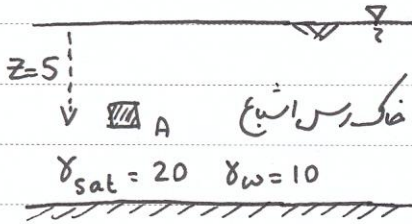 Z=5
A خاک رس اشباع
γsat = 20 γω = 10